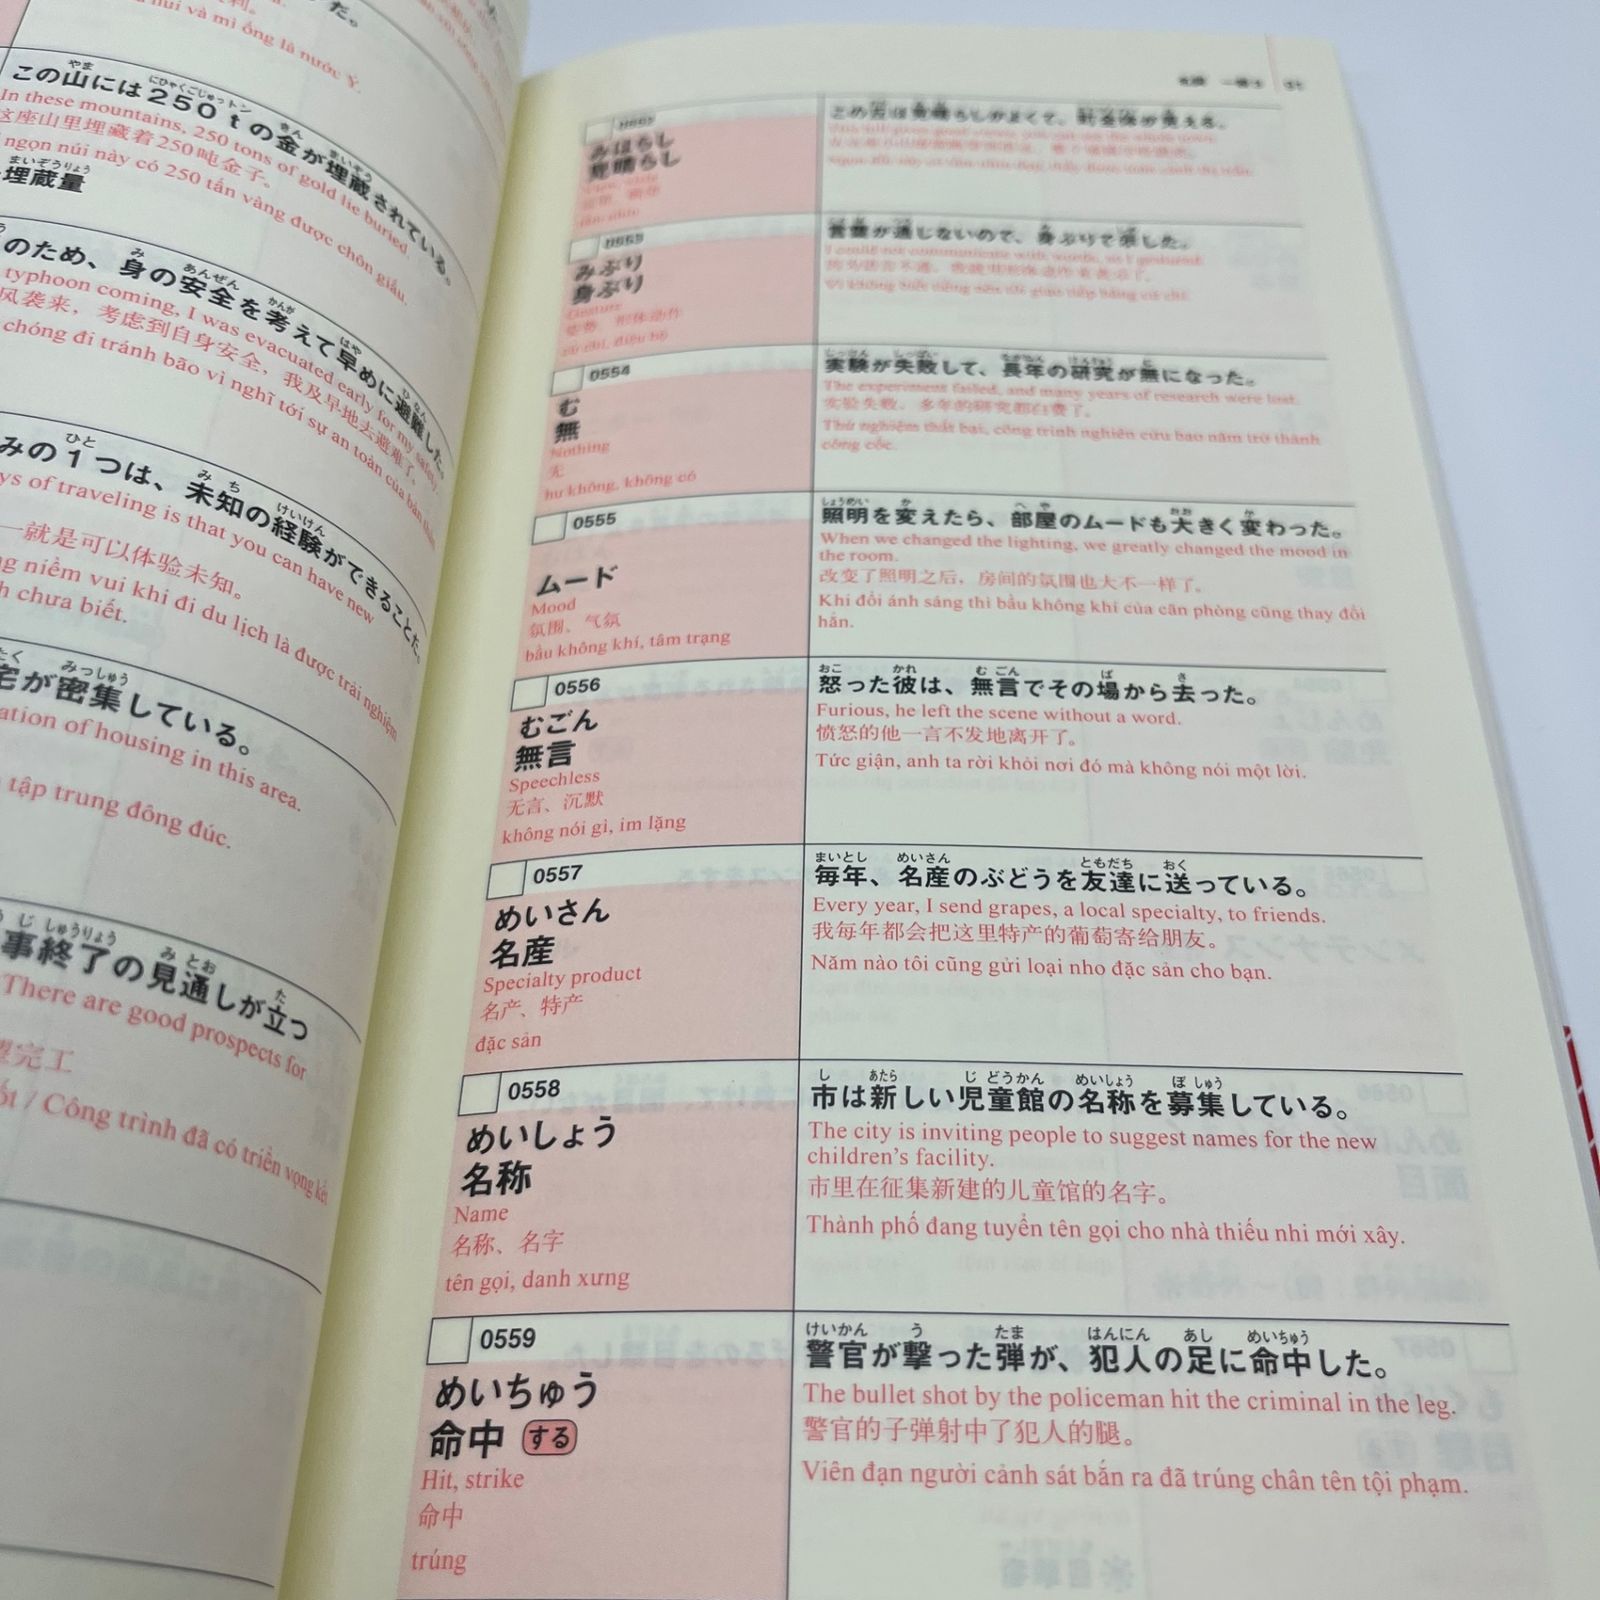 この山には250tの金が埋蔵されている。
In these mountains, 250 tons of gold lie buried.
这座山里埋藏着250吨金子。
ngọn núi này có 250 tấn vàng được chôn giấu.
埋蔵量
のため、身の安全を考えて早めに避難した。
typhoon coming, I was evacuated early for my safety.
风袭来，考虑到自身安全，我及早地去避难了。
chóng đi tránh bão vì nghĩ tới sự an toàn của bản thân.
みの1つは、未知の経験ができることだ。
ys of traveling is that you can have new
一就是可以体验未知。
ng niềm vui khi đi du lịch là được trải nghiệm
h chưa biết.
宅が密集している。
ation of housing in this area.
tập trung đông đúc.
事終了の見通しが立つ
There are good prospects for
望完工
ốt / Công trình đã có triển vọng kết
みはらし
見晴らし
みぶり
身ぶり
Gesture
言葉が通じないので、身ぶりで示した。
I could not communicate with words, so I gestured.
0554
む
無
Nothing
无
hư không, không có
実験が失敗して、長年の研究が無になった。
The experiment failed, and many years of research were lost.
实验失败，多年的研究都白费了。
Thử nghiệm thất bại, công trình nghiên cứu bao năm trở thành
công cốc.
0555
ムード
Mood
氛围、气氛
bầu không khí, tâm trạng
照明を変えたら、部屋のムードも大きく変わった。
When we changed the lighting, we greatly changed the mood in
the room.
改变了照明之后，房间的氛围也大不一样了。
Khi đổi ánh sáng thì bầu không khí của căn phòng cũng thay đổi
hẳn.
0556
むごん
無言
Speechless
无言、沉默
không nói gì, im lặng
怒った彼は、無言でその場から去った。
Furious, he left the scene without a word.
愤怒的他一言不发地离开了。
Tức giận, anh ta rời khỏi nơi đó mà không nói một lời.
0557
めいさん
名産
Specialty product
名产、特产
đặc sản
毎年、名産のぶどうを友達に送っている。
Every year, I send grapes, a local specialty, to friends.
我每年都会把这里特产的葡萄寄给朋友。
Năm nào tôi cũng gửi loại nho đặc sản cho bạn.
0558
めいしょう
名称
Name
名称、名字
tên gọi, danh xưng
市は新しい児童館の名称を募集している。
The city is inviting people to suggest names for the new
children's facility.
市里在征集新建的儿童馆的名字。
Thành phố đang tuyển tên gọi cho nhà thiếu nhi mới xây.
0559
めいちゅう
命中 する
Hit, strike
命中
trúng
警官が撃った弾が、犯人の足に命中した。
The bullet shot by the policeman hit the criminal in the leg.
警官的子弹射中了犯人的腿。
Viên đạn người cảnh sát bắn ra đã trúng chân tên tội phạm.